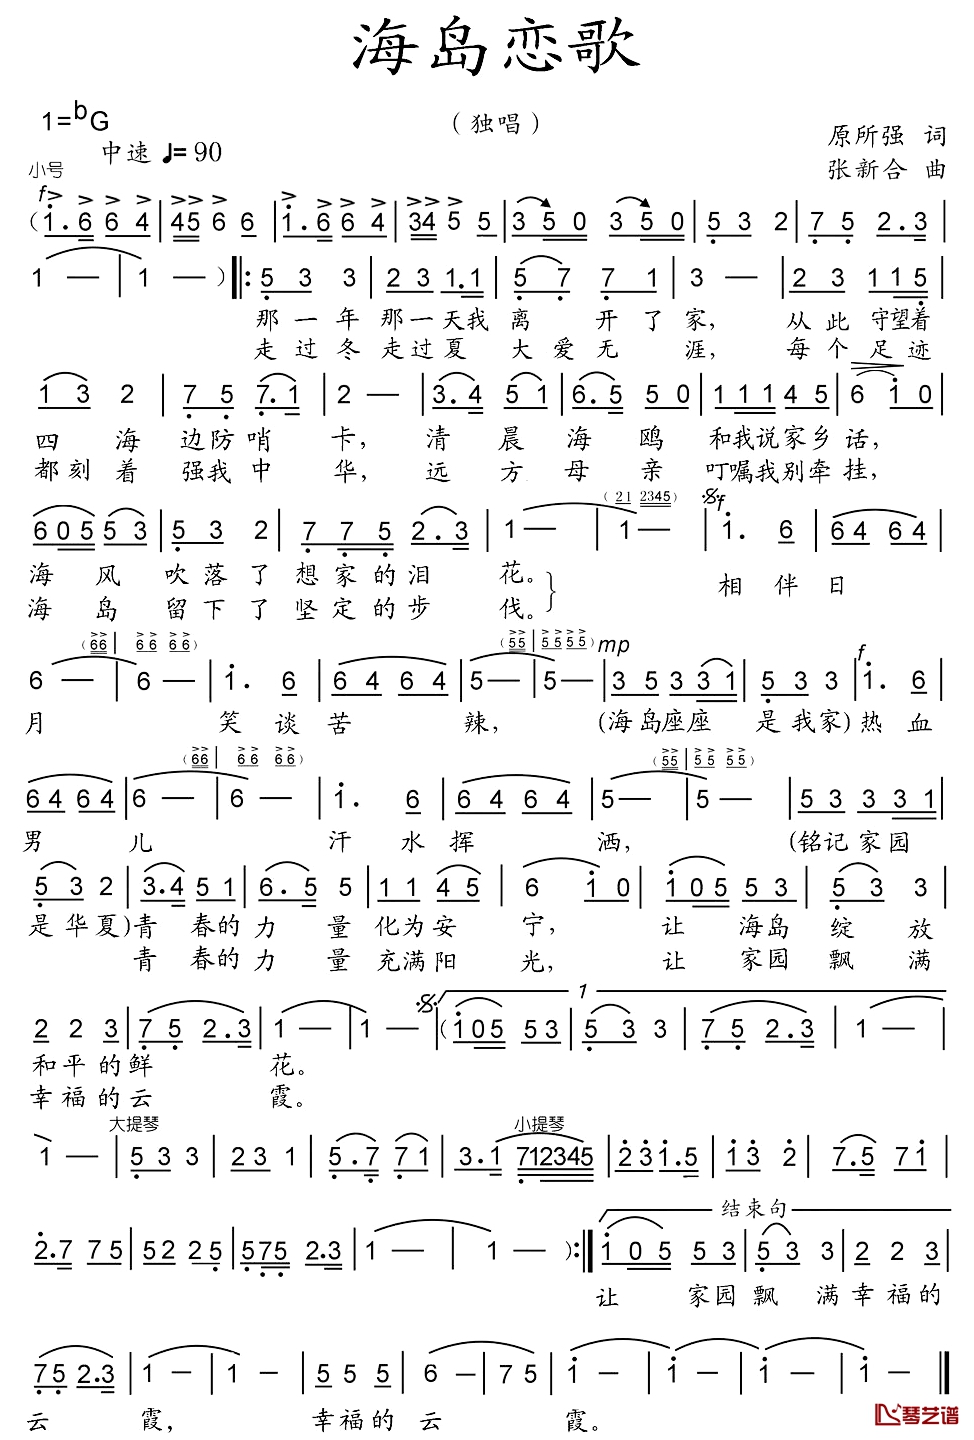 海岛恋歌
1=bG
（独唱）
中速 ♩=90
原所强 词
张新合 曲
小号
f
(1.6 6 4 | 45 6 6 | 1.6 6 4 | 34 5 5 | 3 5 0 3 5 0 | 5 3 2 | 7 5 2.3 |
1 — | 1 — ) ‖: 5 3 3 | 2 3 1.1 | 5 7 7 1 | 3 — | 2 3 1 1 5 |
那一年 那一天我 离 开了家， 从此 守望着
走过冬 走过夏 大爱无 涯， 每个 足迹
1 3 2 | 7 5 7.1 | 2 — | 3.4 5 1 | 6.5 5 0 | 1 1 1 4 5 | 6 1 0 |
四海 边防哨 卡， 清晨海鸥 和我说家乡话，
都刻着 强我中 华， 远方母亲 叮嘱我别牵挂，
(21 2345)
f
6 0 5 5 3 | 5 3 2 | 7 7 5 2.3 | 1 — | 1 — | 1. 6 | 6 4 6 4 |
海风 吹落了 想家的泪 花。 相伴日
海岛 留下了 坚定的步 伐。
(66 | 66 66) (55 | 55 55) mp f
6 — | 6 — | 1. 6 | 6 4 6 4 | 5 — | 5 — | 3 5 3 3 1 | 5 3 3 | 1. 6 |
月 笑谈苦 辣， (海岛座座 是我家) 热血
(66 | 66 66) (55 | 55 55)
6 4 6 4 | 6 — | 6 — | 1. 6 | 6 4 6 4 | 5 — | 5 — | 5 3 3 3 1 |
男儿 汗水挥 洒， (铭记家园
5 3 2 | 3.4 5 1 | 6.5 5 | 1 1 4 5 | 6 1 0 | 1 0 5 5 3 | 5 3 3 |
是华夏) 青春的力量 化为安宁， 让 海岛绽放
青春的力量 充满阳光， 让 家园飘满
1
2 2 3 | 7 5 2.3 | 1 — | 1 — | (1 0 5 5 3 | 5 3 3 | 7 5 2.3 | 1 — |
和平的鲜 花。
幸福的云 霞。
大提琴 小提琴
1 — | 5 3 3 | 2 3 1 | 5.7 7 1 | 3.1 712345 | 2 3 1.5 | 1 3 2 | 7.5 7 1 |
结束句
2.7 7 5 | 5 2 2 5 | 5 7 5 2.3 | 1 — | 1 — ) :‖ 1 0 5 5 3 | 5 3 3 | 2 2 3 |
让 家园飘满幸福的
7 5 2.3 | 1 — | 1 — | 5 5 5 | 6 — | 7 5 | 1 — | 1 — | 1 — | 1 — ‖
云霞， 幸福的云霞。
琴艺谱